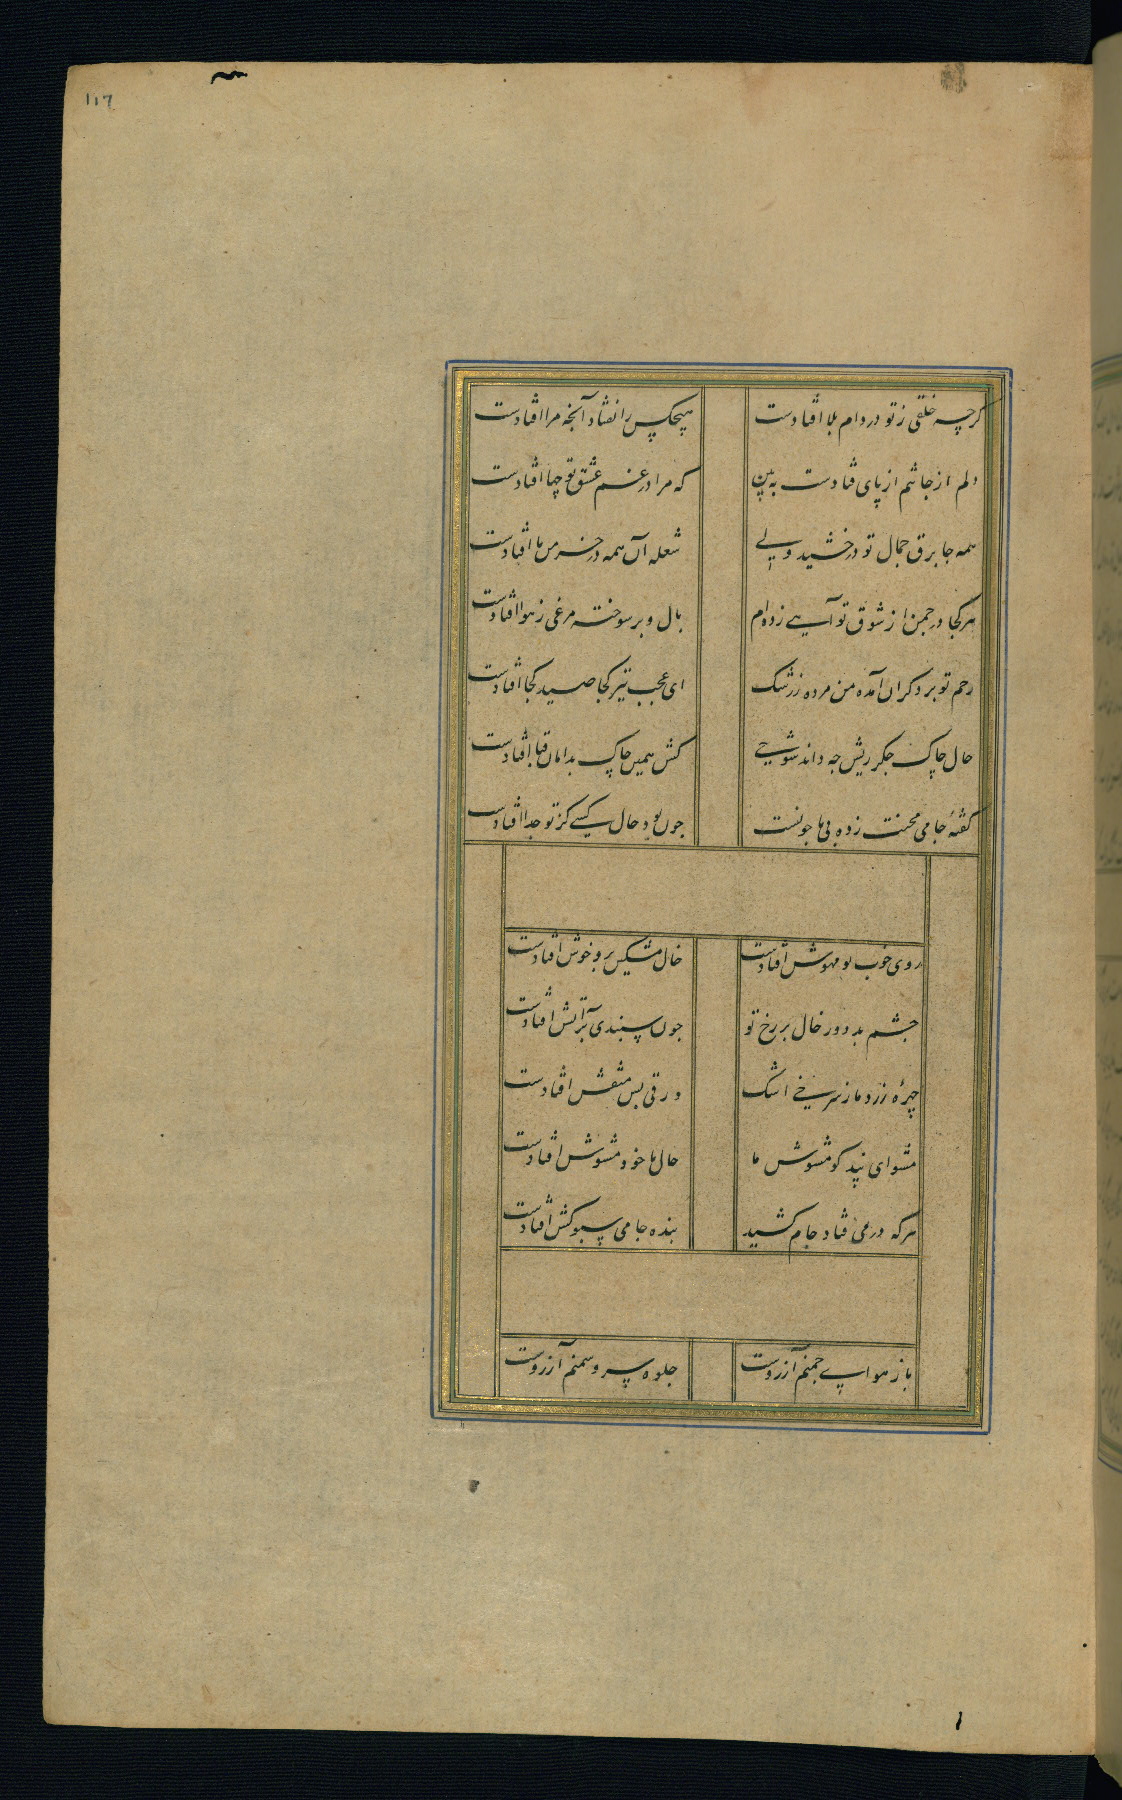 ١١٦
کرچه خلقی ز تو در دام بلا افتادست
هیچکس را نفتاد آنچه مرا افتادست
دلم از جا شد از پای فتادست به بین
که مرا در غم عشق تو چها افتادست
همه جا برق جمال تو درخشید ولی
شعله آن همه در خرمن ما افتادست
هر کجا در چمن از شوق تو آهی زده ام
بال و پر سوخته مرغی ز هوا افتادست
رحم تو بر دکران آمده من مرده ز رشک
ای عجب تیر کجا صید کجا افتادست
حال چاک جکر ریش چه داند شوخی
کش همین چاک بدامان قبا افتادست
کفتهٔ جامی محنت زده بی ما چونست
چون بود حال کسی کز تو جدا افتادست
روی خوب تو مهوش افتادست
خال مشکین برو خوش افتادست
چشم بد دور خال بر رخ تو
چون سپندی بر آتش افتادست
چهرهٔ زرد ما ز سرخی اشک
ورقی بس منقش افتادست
مشو ای پند کو مشوش ما
حال ما خود مشوش افتادست
هر که در می فتاد جام کشید
بنده جامی سبوکش افتادست
باز هوای چمنم آرزوست
جلوه سرو سمنم آرزوست